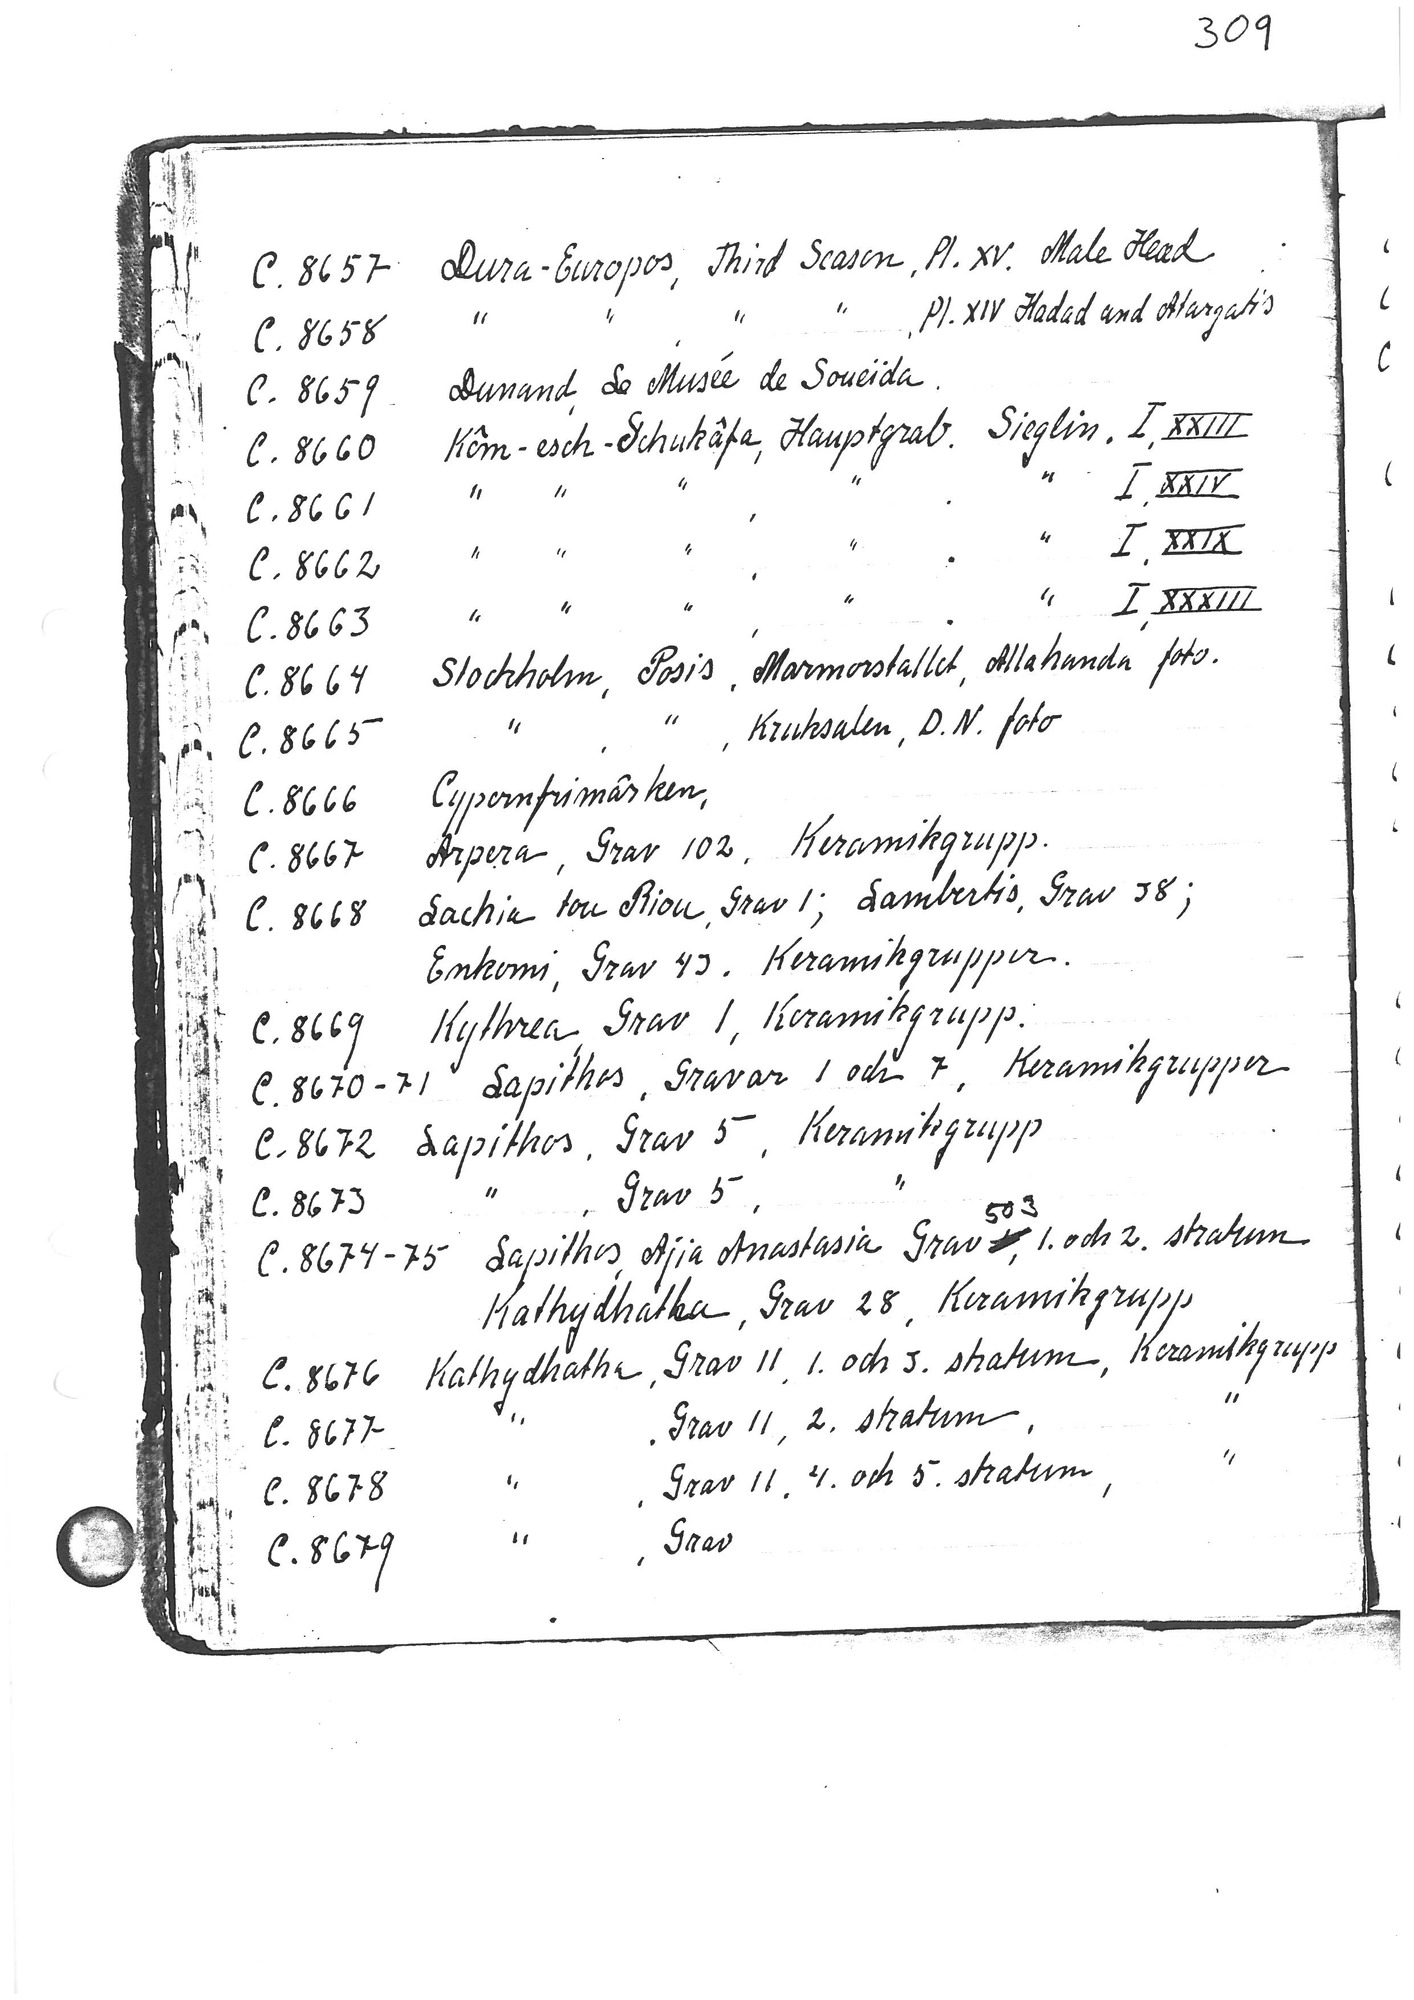 309
C. 8657 Dura-Europos, Third Season, Pl. XV. Male Head
C. 8658 " " , " " , Pl. XIV Hadad and Atargatis
C. 8659 Dunand, Le Musée de Soueïda.
C. 8660 Kôm-esch-Schukâfa, Hauptgrab. Sieglin. I, XXIII
C. 8661 " " " , " . " I, XXIV
C. 8662 " " " , " . " I, XXIX
C. 8663 " " " , " . " I, XXXIII
C. 8664 Stockholm, Posis, Marmorstallet, Allahanda foto.
C. 8665 " , " , Kruksalen, D.N. foto
C. 8666 Cypernfrimärken,
C. 8667 Arpera, Grav 102, Keramikgrupp.
C. 8668 Lachia tou Riou, Grav 1; Lambertis, Grav 38;
Enkomi, Grav 43. Keramikgrupper.
C. 8669 Kythrea, Grav 1, Keramikgrupp.
C. 8670-71 Lapithos, Gravar 1 och 7, Keramikgrupper
C. 8672 Lapithos, Grav 5, Keramikgrupp
C. 8673 " , Grav 5, "
503
C. 8674-75 Lapithos, Ajia Anastasia Grav , 1. och 2. stratum
Kathydhatha, Grav 28, Keramikgrupp
C. 8676 Kathydhatha, Grav 11, 1. och 3. stratum, Keramikgrupp
C. 8677 " , Grav 11, 2. stratum, "
C. 8678 " , Grav 11, 4. och 5. stratum, "
C. 8679 " , Grav